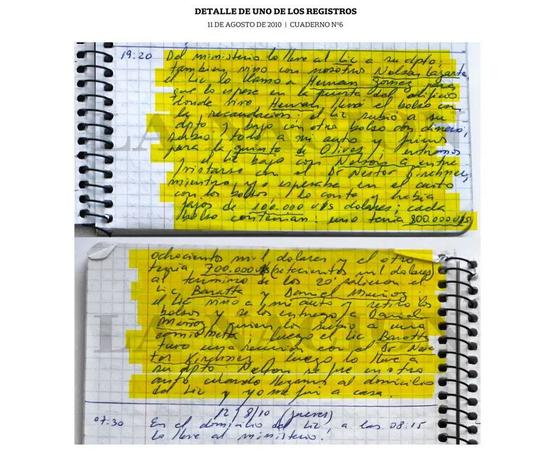 DETALLE DE UNO DE LOS REGISTROS
11 DE AGOSTO DE 2010 | CUADERNO Nº6
19:20 Del ministerio lo lleve al Lic a su dpto,
tambien vino con nosotro Nelson Lazarte
el Lic lo llamo a Hernan Gomez para
que lo espere en la puerta del edificio
donde vive Hernan, llevó el bolso con
la recaudacion; el Lic subio a su
dpto y bajo con otro bolso con dinero,
todo a mi auto y fuimos
para la quinta de Olivos y entramos
el Lic bajo con Nelson a entre
vistarse con el Dr Nestor Kirchner,
mientras yo esperaba en el auto
con los bolsos y lo conte había
fajos de 100.000 U$S dolares; cada
bolso contenian: uno tenia 800.000 U$S
ochociento mil dolares y el otro
tenia 700.000 U$S (setecientos mil dolares)
al termino de los 20' salieron el
Lic Baratta y Daniel Muñoz
el Lic vino a mi auto y retiro los
bolsos y se los entrego a Daniel
Muñoz quien los subio a una
camioneta luego el Lic Baratta
tuvo una reunion con el Dr Nes
tor Kirchner luego lo lleve a
su dpto Nelson se fue en otro
auto cuando llegamos al domicilio
del Lic y yo me fui a casa.
12/8/10 (jueves)
07:30 En el domicilio del Lic, a las 08:15
lo lleve al ministerio.